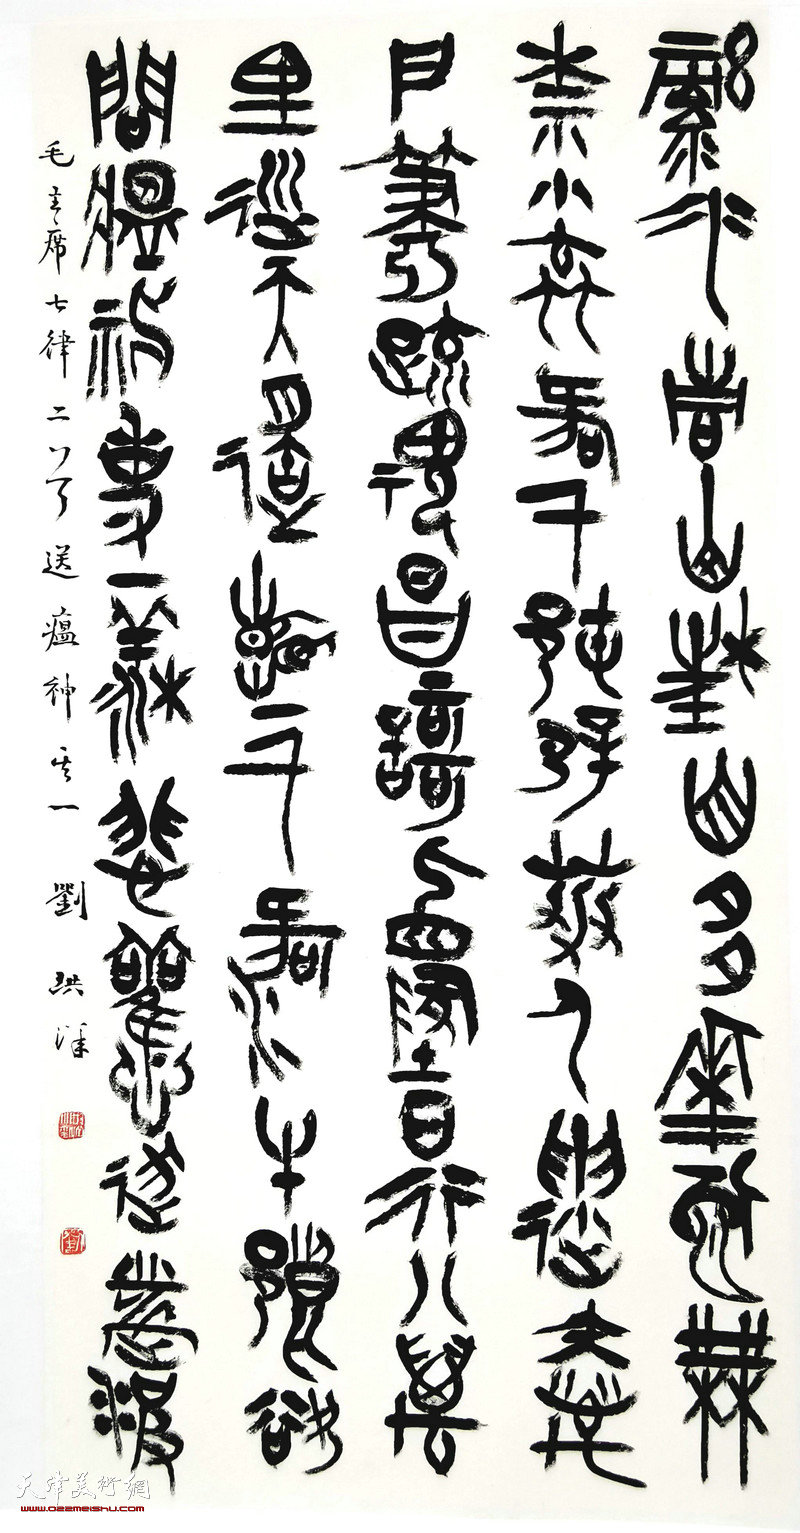 綠水青山枉自多華佗無
奈小虫何千邨薜荔人遺矢萬
戶蕭疏鬼唱歌坐地日行八萬
里巡天遙看一千河牛郎欲
問瘟神事一樣悲歡逐逝波
毛主席七律二首送瘟神其一 劉洪洋
天津美術網
www.022meishu.com